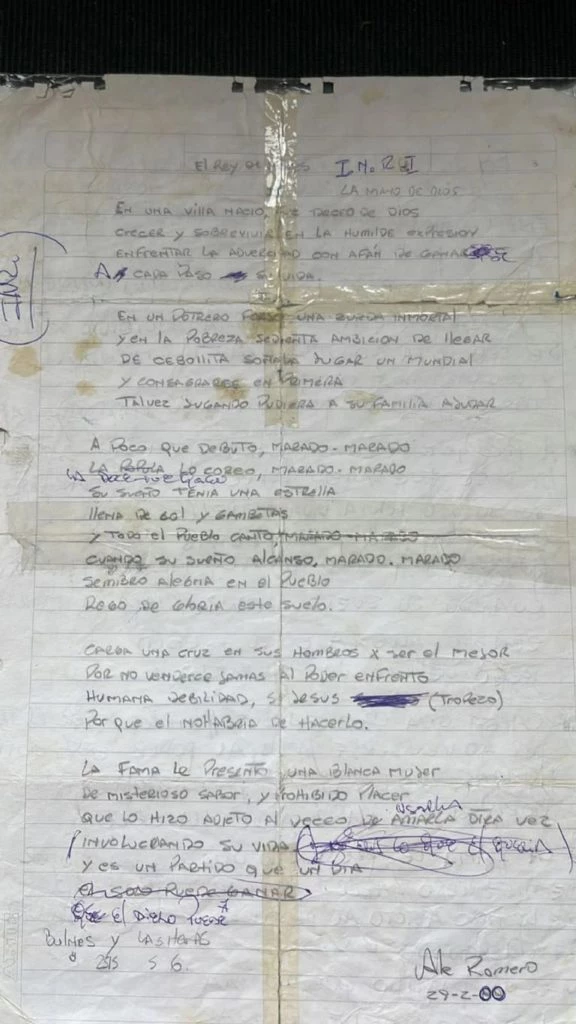 El Rey de I.N.R.I
LA MANO DE DIOS
EN UNA VILLA NACIO, DECEO DE DIOS
CRECER Y SOBREVIVIR EN LA HUMILDE EXPRESION
ENFRENTAR LA ADVERCIDAD CON AFÁN DE GANARSE
A CADA PASO SU VIDA.
INRI
EN UN POTRERO FORJO UNA ZURDA INMORTAL
Y EN LA POBREZA SEDIENTA AMBICION DE LLEGAR
DE CEBOLLITA SOÑABA JUGAR UN MUNDIAL
Y CONSAGRARCE EN PRIMERA
TALVEZ JUGANDO PUDIERA A SU FAMILIA AYUDAR
A POCO QUE DEBUTO, MARADO-MARADO
LA POPOLA LO COREO, MARADO-MARADO
SU SUEÑO TENIA UNA ESTRELLA
LLENA DE GOL Y GAMBETAS
Y TODO EL PUEBLO CANTO, MARADO-MARADO
CUANDO SU SUEÑO ALCANSO, MARADO. MARADO
SEMBRO ALEGRIA EN EL PUEBLO
REGO DE GLORIA ESTE SUELO.
CARGA UNA CRUZ EN SUS HOMBROS X SER EL MEJOR
POR NO VENDERCE JAMAS AL PODER ENFRENTO
HUMANA DEBILIDAD, SI JESUS (TROPEZO)
POR QUE EL NO HABRIA DE HACERLO.
LA FAMA LE PRESENTO UNA BLANCA MUJER
DE MISTERIOSO SABOR, Y PROHIBIDO PLACER
QUE LO HIZO ADICTO AL DECEO DE AMARLA OTRA VEZ
usarla
INVOLUCRANDO SU VIDA
Y ES UN PARTIDO QUE UN DIA
EL SOLO PUEDE GANAR
EL DIEGO PUEDE
BULNES Y LAS HERAS
Ale Romero
29-2-00